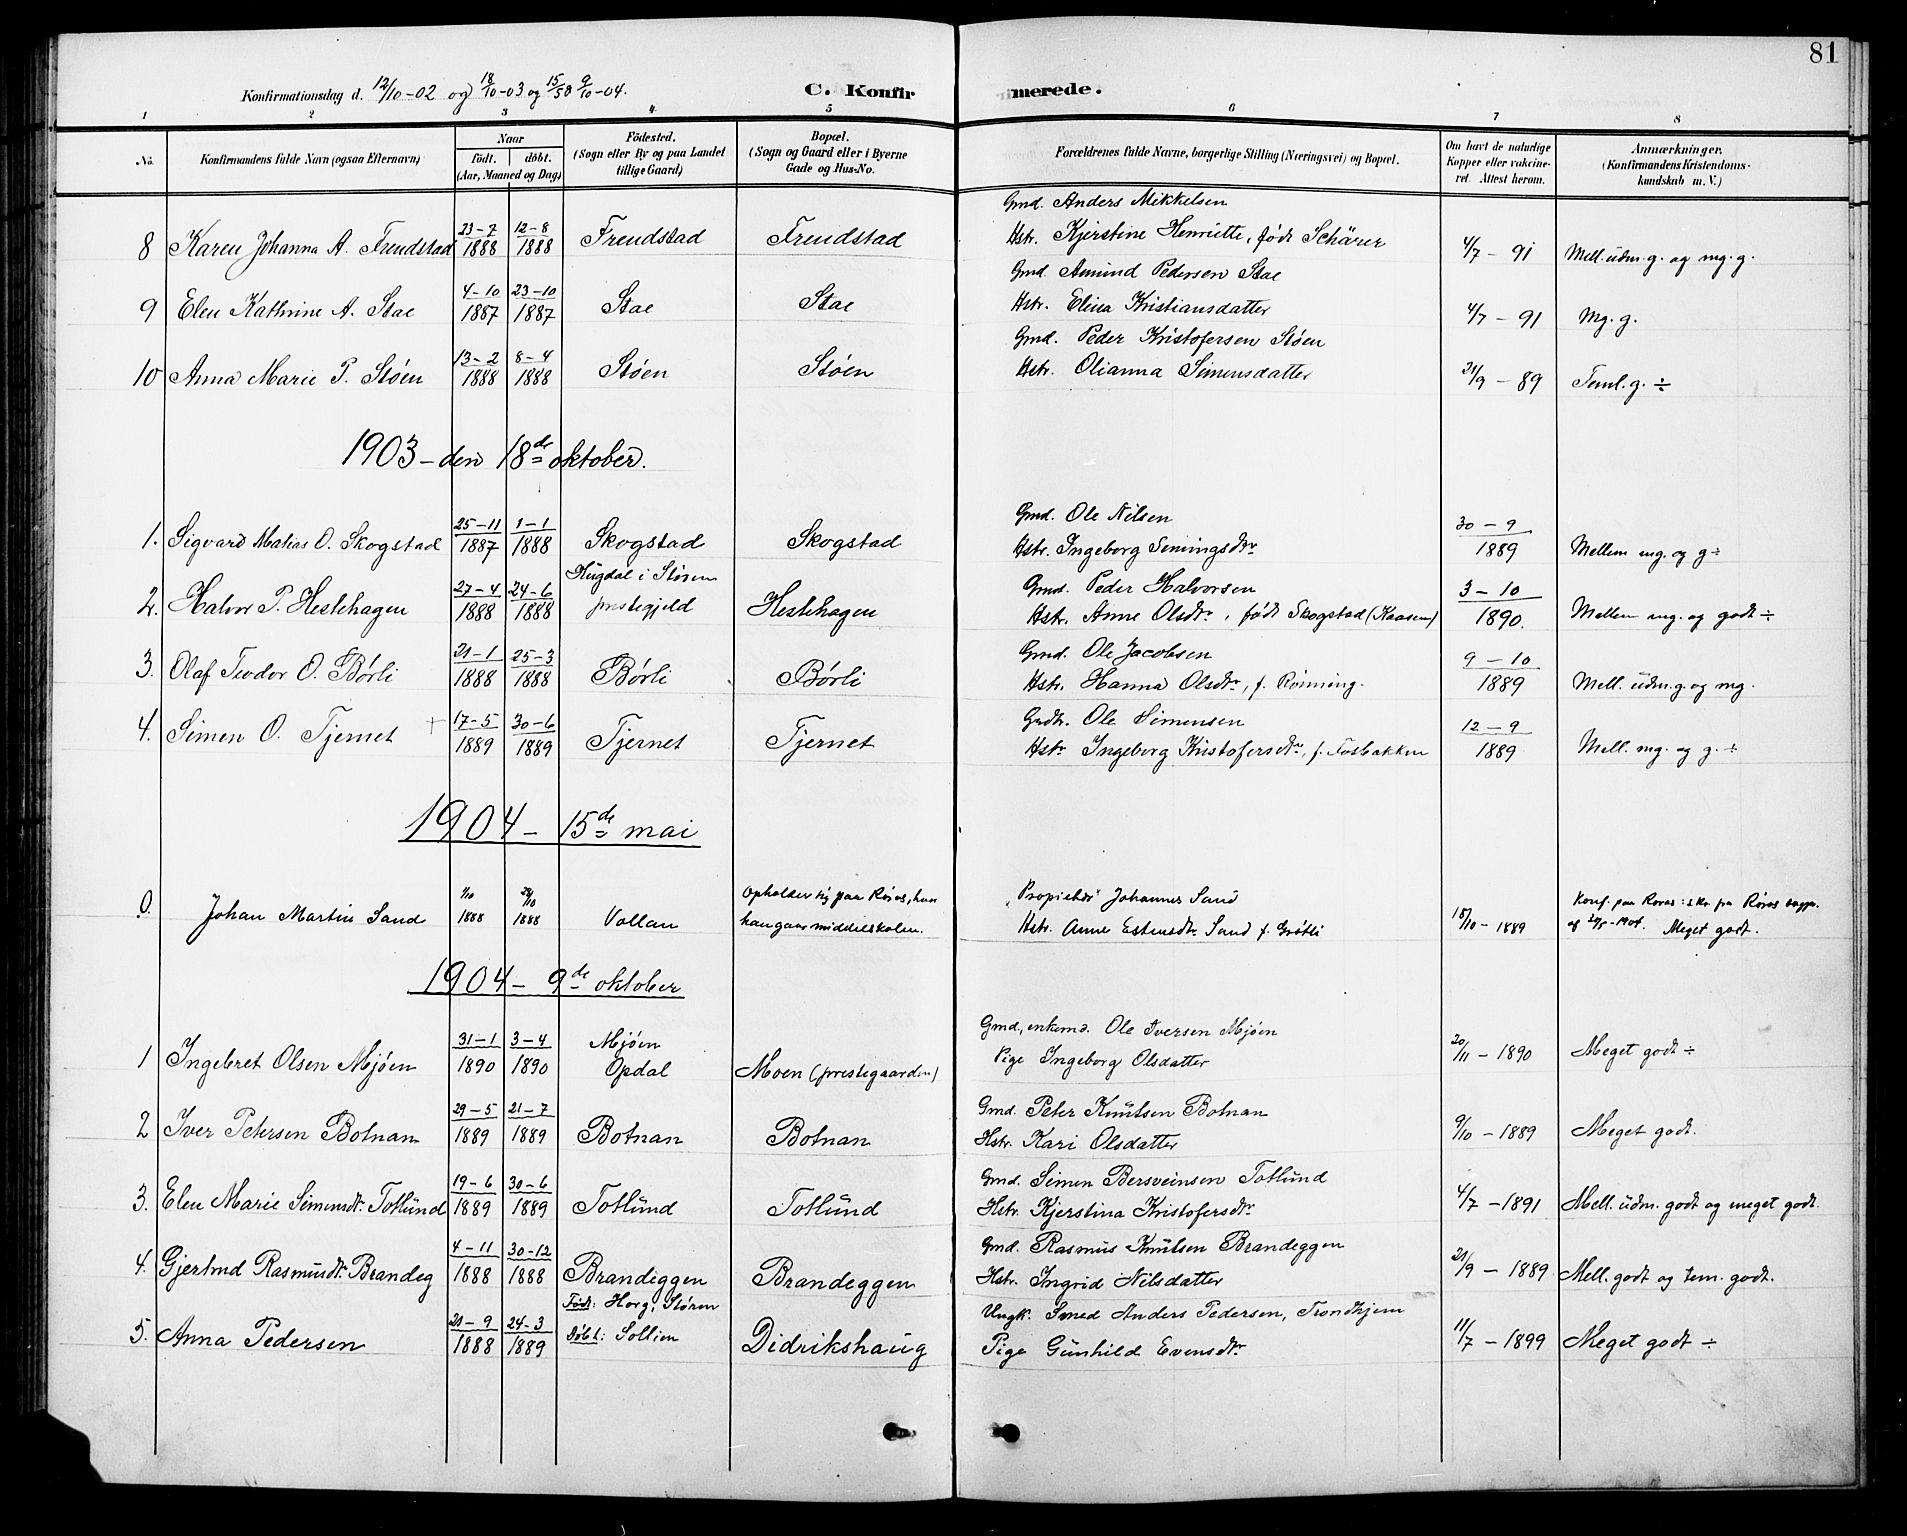 81
Konfirmationsdag d. 12/10-02 og 18/10-03 og 15/5 & 9/10-04.
C. Konfirmerede.
1 2 3 4 5 6 7 8
No.
Konfirmandens fulde Navn (ogsaa Efternavn)
Naar
födt. döbt.
(Aar, Maaned og Dag)
Födested.
(Sogn eller By og paa Landet
tillige Gaard)
Bopæl.
(Sogn og Gaard eller i Byerne
Gade og Hus-No.
Forældrenes fulde Navne, borgerlige Stilling (Næringsvei) og Bopæl.
Om havt de naturlige
Kopper eller vakcine-
ret. Attest herom.
Anmærkninger.
(Konfirmandens Kristendoms-
kundskab m. V.)
Gmd. Anders Mikkelsen
8 Karen Johanna A. Frendstad 23-7 1888 12-8 1888 Frendstad Frendstad Hstr. Kjerstine Henriette, født Schärer 4/7 - 91 Mell. udm. g. og mg. g.
Gmd. Amund Pedersen Stae
9 Elen Kathrine A. Stae 4-10 1887 23-10 1887 Stae Stae Hstr. Elina Kristiansdatter 4/7 - 91 Mg. g.
Gmd. Peder Kristofersen Støen
10 Anna Marie P. Støen 13-2 1888 8-4 1888 Støen Støen Hstr. Olianna Simensdatter 21/9 - 89 Teml. g. ÷
1903 - den 18de oktober.
Gmd. Ole Nilsen
1. Sigvard Matias O. Skogstad 25-11 1887 1-1 1888 Skogstad Skogstad Hstr. Ingeborg Semingsdtr 30-9 1889 Mellem mg. og g ÷
Hugdal i Støren Gmd. Peder Halvorsen
2. Halvor P. Hestehagen 27-4 1888 24-6 1888 prestegjeld Hestehagen Hstr. Anne Olsdtr, født Skogstad (Kaasen) 3-10 1890. Mellem mg. og godt ÷
Gmd. Ole Jacobsen
3. Olaf Teodor O. Børli 21-1 1888 25-3 1888 Børli Børli Hstr. Hanna Olsdtr, f. Rønning. 9-10 1889 Mell. udm. g. og mg.
Ole Simensen
4. Simen O. Tjernet + 17-5 1889 30-6 1889 Tjernet Tjernet Hstr Ingeborg Kristofersdtr, f. Fosbakken 12-9 1889 Mell. mg. og g. ÷
1904 - 15de mai
Opholder sig paa Røros, hvor Propietær Johannes Sand Konf. paa Røros: Røros
0. Johan Martin Sand 1/10 1888 28/10 1888 Vollan han gaar middelskolen. Hstr. Anne Estensdtr Sand f. Grøtli 18/10 - 1889 af 24/5-1904. Meget godt.
1904 - 9de oktober
Mjøen Gmd., enkemd. Ole Iversen Mjøen
1 Ingebret Olsen Mjøen 31-1 1890 3-4 1890 Opdal Moen (prestegaarden) Pige Ingeborg Olsdatter 20/11 - 1890 Meget godt ÷
Gmd. Peter Knutsen Botnan
2 Iver Petersen Botnan 29-5 1889 21-7 1889 Botnan Botnan Hstr. Kari Olsdatter 9/10 - 1889 Meget godt.
Gmd. Simen Bersveinsen Totlund
3. Elen Marie Simensdt. Totlund 19-6 1889 30-6 1889 Totlund Totlund Hstr. Kjerstina Kristofersdtr 4/7 - 1891 Mell. udm. godt og meget godt.
Gmd. Rasmus Knutsen Brandeggen
4. Gjertrud Rasmusdt. Brandeg 4-11 1888 30-12 1888 Brandeggen Brandeggen Hstr. Ingrid Nilsdatter 21/9 - 1889 Mell. godt og tem. godt.
Født: Horg, Støren Ungk. Smed Anders Pedersen, Trondhjem
5. Anna Pedersen 21-9 1888 24-3 1889 Døbt: Sollien Didrikshaug Pige Gunhild Evensdtr 11/7 - 1899 Meget godt ÷